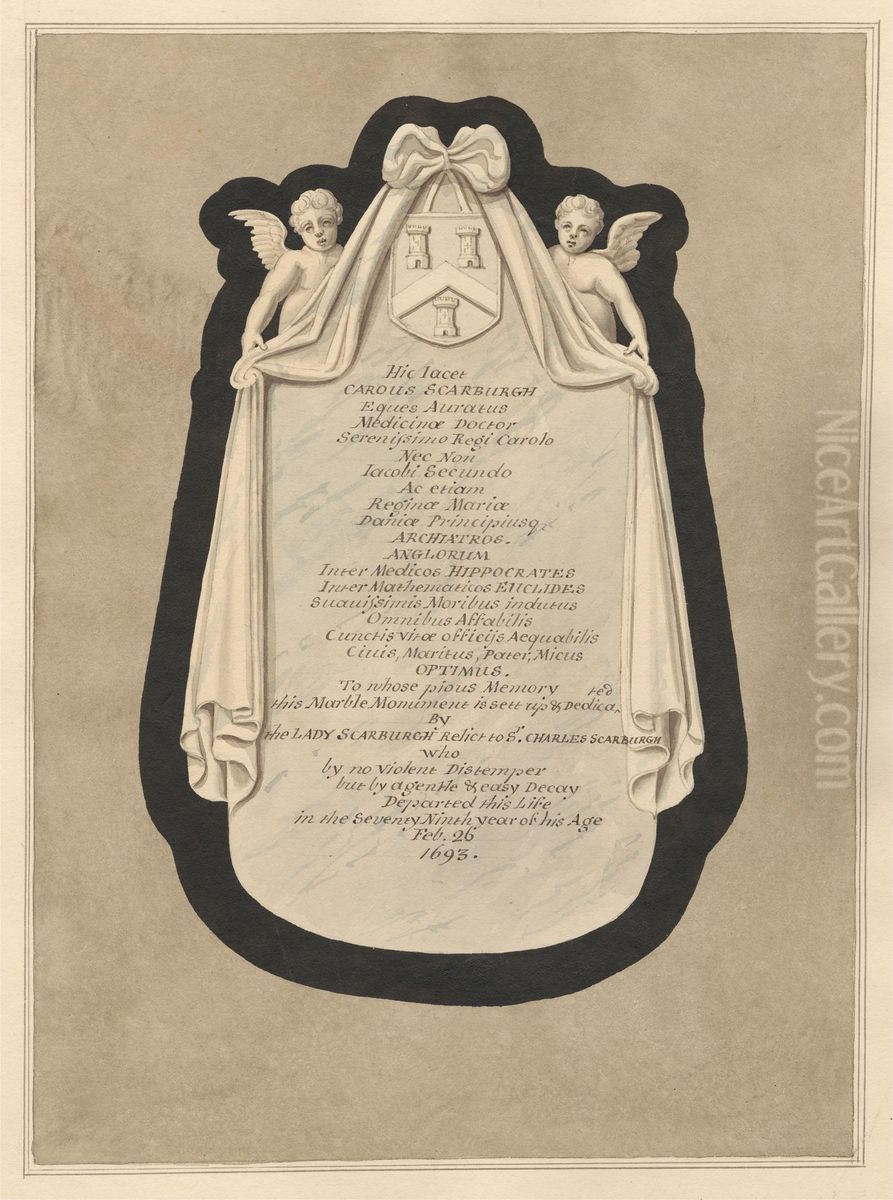 Hic Iacet
CAROUS SCARBURGH
Eques Auratus
Medicinœ Doctor
Serenissimo Regi Carolo
Nec Non
Iacobi Secundo
Ac etiam
Reginœ Mariœ
Daniœ Principiusq
ARCHIATROS.
ANGLORUM
Inter Medicos HIPPOCRATES
Inter Mathematicos EUCLIDES
Suauissimis Moribus indutus
Omnibus Affabilis
Cunctis vitœ officijs Aequabilis
Ciuis, Maritus, Pater, Micus
OPTIMUS.
To whose pious Memory ted
this Marble Monument is sett up & Dedica,
By
the LADY SCARBURGH Relict to Sr. CHARLES SCARBURGH
who
by no violent Distemper
but by a gentle & easy Decay
Departed this Life
in the Seventy Ninth year of his Age
Feb. 26
1693.
NiceArtGallery.com